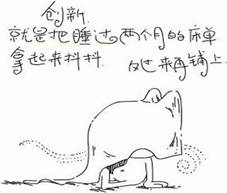 创新
就是把睡过两个月的床单
拿起来抖抖 反过来再铺上